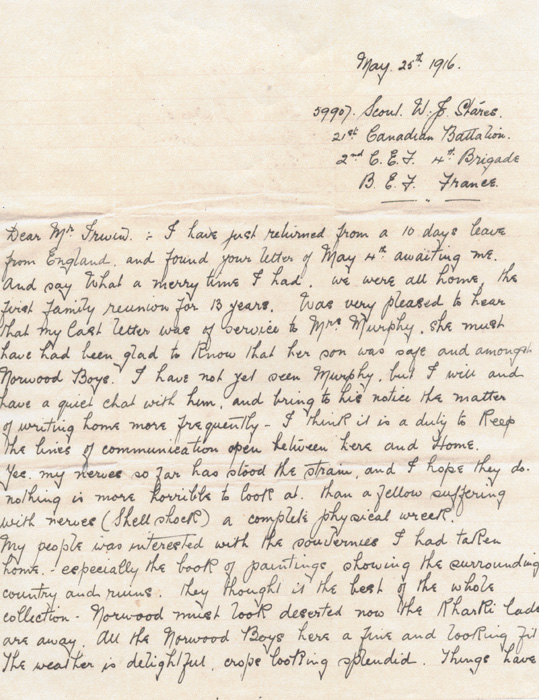 May. 25th 1916.
59907. Scout. W. J. Stares.
21st Canadian Battalion.
2nd C. E. F. 4th Brigade
B. E. F. France.
Dear Mr Irwin. :- I have just returned from a 10 days leave
from England, and found your letter of May 4th awaiting me.
And say what a merry time I had, we were all home, the
first family reunion for 13 years. Was very pleased to hear
that my last letter was of service to Mrs Murphy, she must
have had been glad to know that her son was safe and amongst
Norwood Boys. I have not yet seen Murphy, but I will and
have a quiet chat with him, and bring to his notice the matter
of writing home more frequently - I think it is a duty to keep
the lines of communication open between here and Home.
Yes, my nerves so far has stood the strain, and I hope they do.
nothing is more horrible to look at, than a fellow suffering
with nerves (Shell shock) a complete physical wreck.
My people was interested with the souvernies I had taken
home. - especially the book of paintings showing the surrounding
country and ruins. they thought is the best of the whole
collection - Norwood must look deserted now the Kharki Lads
are away. All the Norwood Boys here a fine and looking fit
The weather is delightful, crops looking splendid. Things have